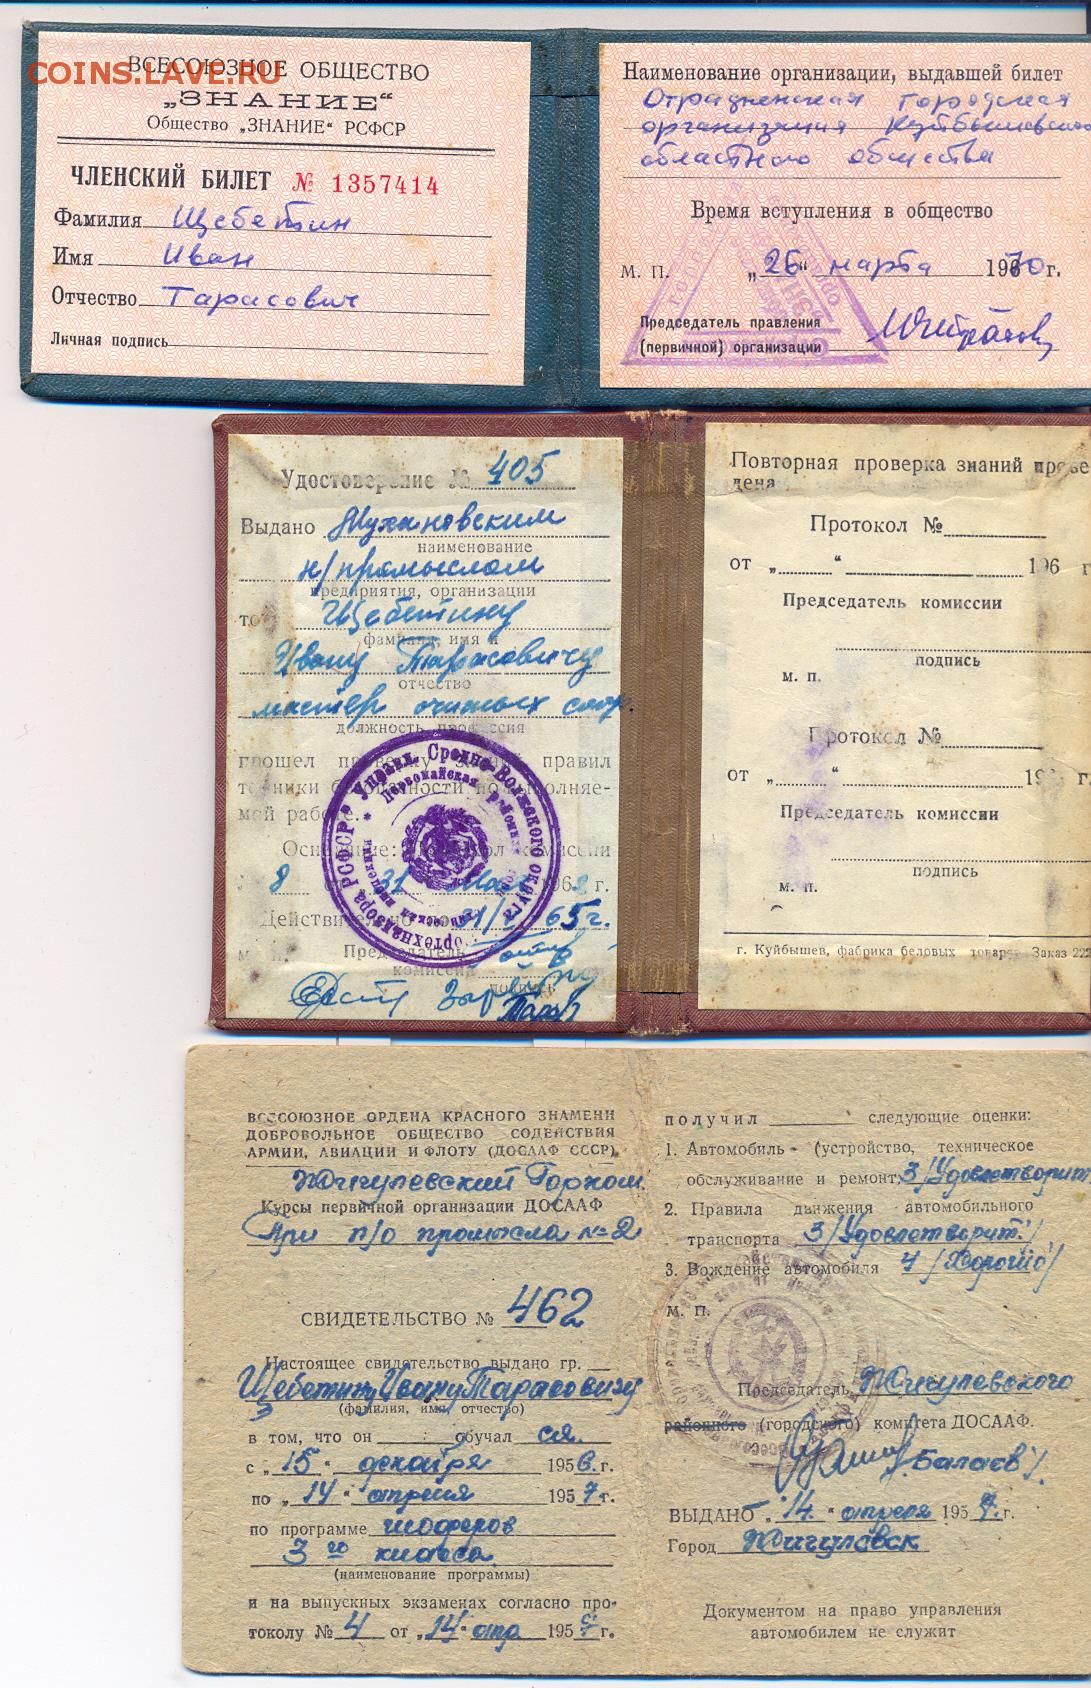 COINS.LAVE.RU
ВСЕСОЮЗНОЕ ОБЩЕСТВО
„ЗНАНИЕ“
Общество „ЗНАНИЕ“ РСФСР
ЧЛЕНСКИЙ БИЛЕТ № 1357414
Фамилия Щебетин
Имя Иван
Отчество Тарасович
Личная подпись
Наименование организации, выдавшей билет
Отрадненская городская
организация Куйбышевского
областного общества
Время вступления в общество
М. П. „26“ марта 1970 г.
Председатель правления
(первичной) организации
Удостоверение № 405
Выдано Мухановским
наименование
н/промыслом
предприятия, организации
то Щебетину
фамилия, имя и
Ивану Тарасовичу
отчество
мастер очистных соор.
должность, профессия
прошел проверку знаний правил
техники безопасности по выполняе-
мой работе.
Основание: протокол комиссии
№ 8 от 31 мая 196 г.
Действительно по 31/ 65 г.
М. П. Председатель
комиссии
подпись
Управл. Средне-Волжского округа
Госгортехнадзора РСФСР
Первомайская районная
Повторная проверка знаний прове-
дена
Протокол №
от „ “ 196 г
Председатель комиссии
подпись
м. п.
Протокол №
от „ “ 196
Председатель комиссии
подпись
м. п.
г. Куйбышев, фабрика беловых товаров Заказ 222
ВСЕСОЮЗНОЕ ОРДЕНА КРАСНОГО ЗНАМЕНИ
ДОБРОВОЛЬНОЕ ОБЩЕСТВО СОДЕЙСТВИЯ
АРМИИ, АВИАЦИИ И ФЛОТУ (ДОСААФ СССР)
Жигулевский Горком
Курсы первичной организации ДОСААФ
При п/о промысла №2
СВИДЕТЕЛЬСТВО № 462
Настоящее свидетельство выдано гр.
Щебетину Ивану Тарасовичу
(фамилия, имя, отчество)
в том, что он обучался
с „15“ декабря 1956 г.
по „14“ апреля 1957 г.
по программе шоферов
3го класса
(наименование программы)
и на выпускных экзаменах согласно про-
токолу № 4 от „14“ апр 1957 г.
получил следующие оценки:
1. Автомобиль (устройство, техническое
обслуживание и ремонт 3/Удовлетворит/
2. Правила движения автомобильного
транспорта 3/Удовлетворит./
3. Вождение автомобиля 4/Хорошо/
М. П.
Председатель Жигулевского
районного (городского) комитета ДОСААФ.
/Балаев/.
ВЫДАНО „14“ апреля 1957 г.
Город Жигулевск
Документом на право управления
автомобилем не служит